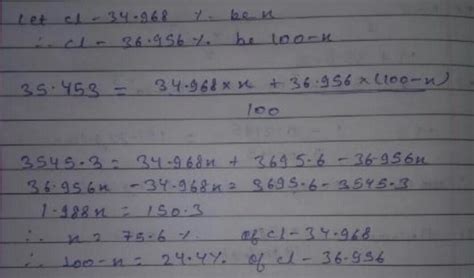 Let cl - 34.968 % be n
∴ cl - 36.956 % be 100-n
35.453 = 34.968×n + 36.956×(100-n)
100
3545.3 = 34.968n + 3695.6 - 36.956n
36.956n - 34.968n = 3695.6 - 3545.3
1.988n = 150.3
∴ n = 75.6 % of cl - 34.968
∴ 100-n = 24.4% of cl - 36.956